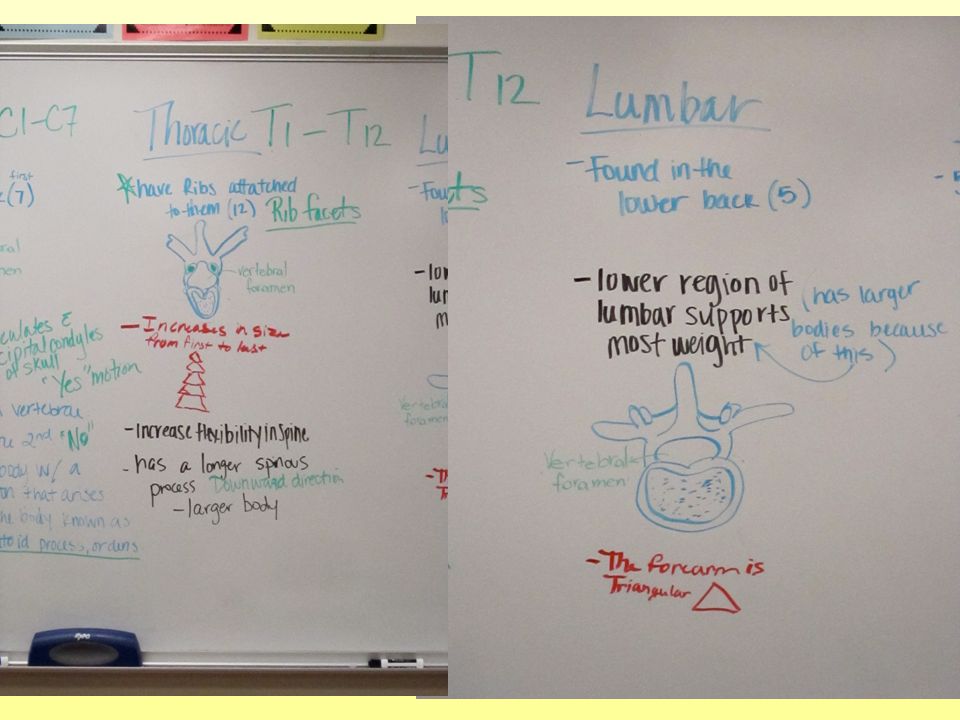 C1-C7
first
(7)
"Yes" motion
vertebrae
2nd "No"
body w/ a
that arises
the body known as
process, or dens
Thoracic T1 - T12
have Ribs attatched
to them (12) Rib facets
vertebral
foramen
- Increases in size
from first to last
- Increase flexibility in spine
- has a longer spinous
process Downward direction
- larger body
expo
T12
Lumbar
- Found in the
lower back (5)
- lower region of
lumbar supports
most weight
(has larger
bodies because
of this)
Vertebral
foramen
- The forearm is
Triangular